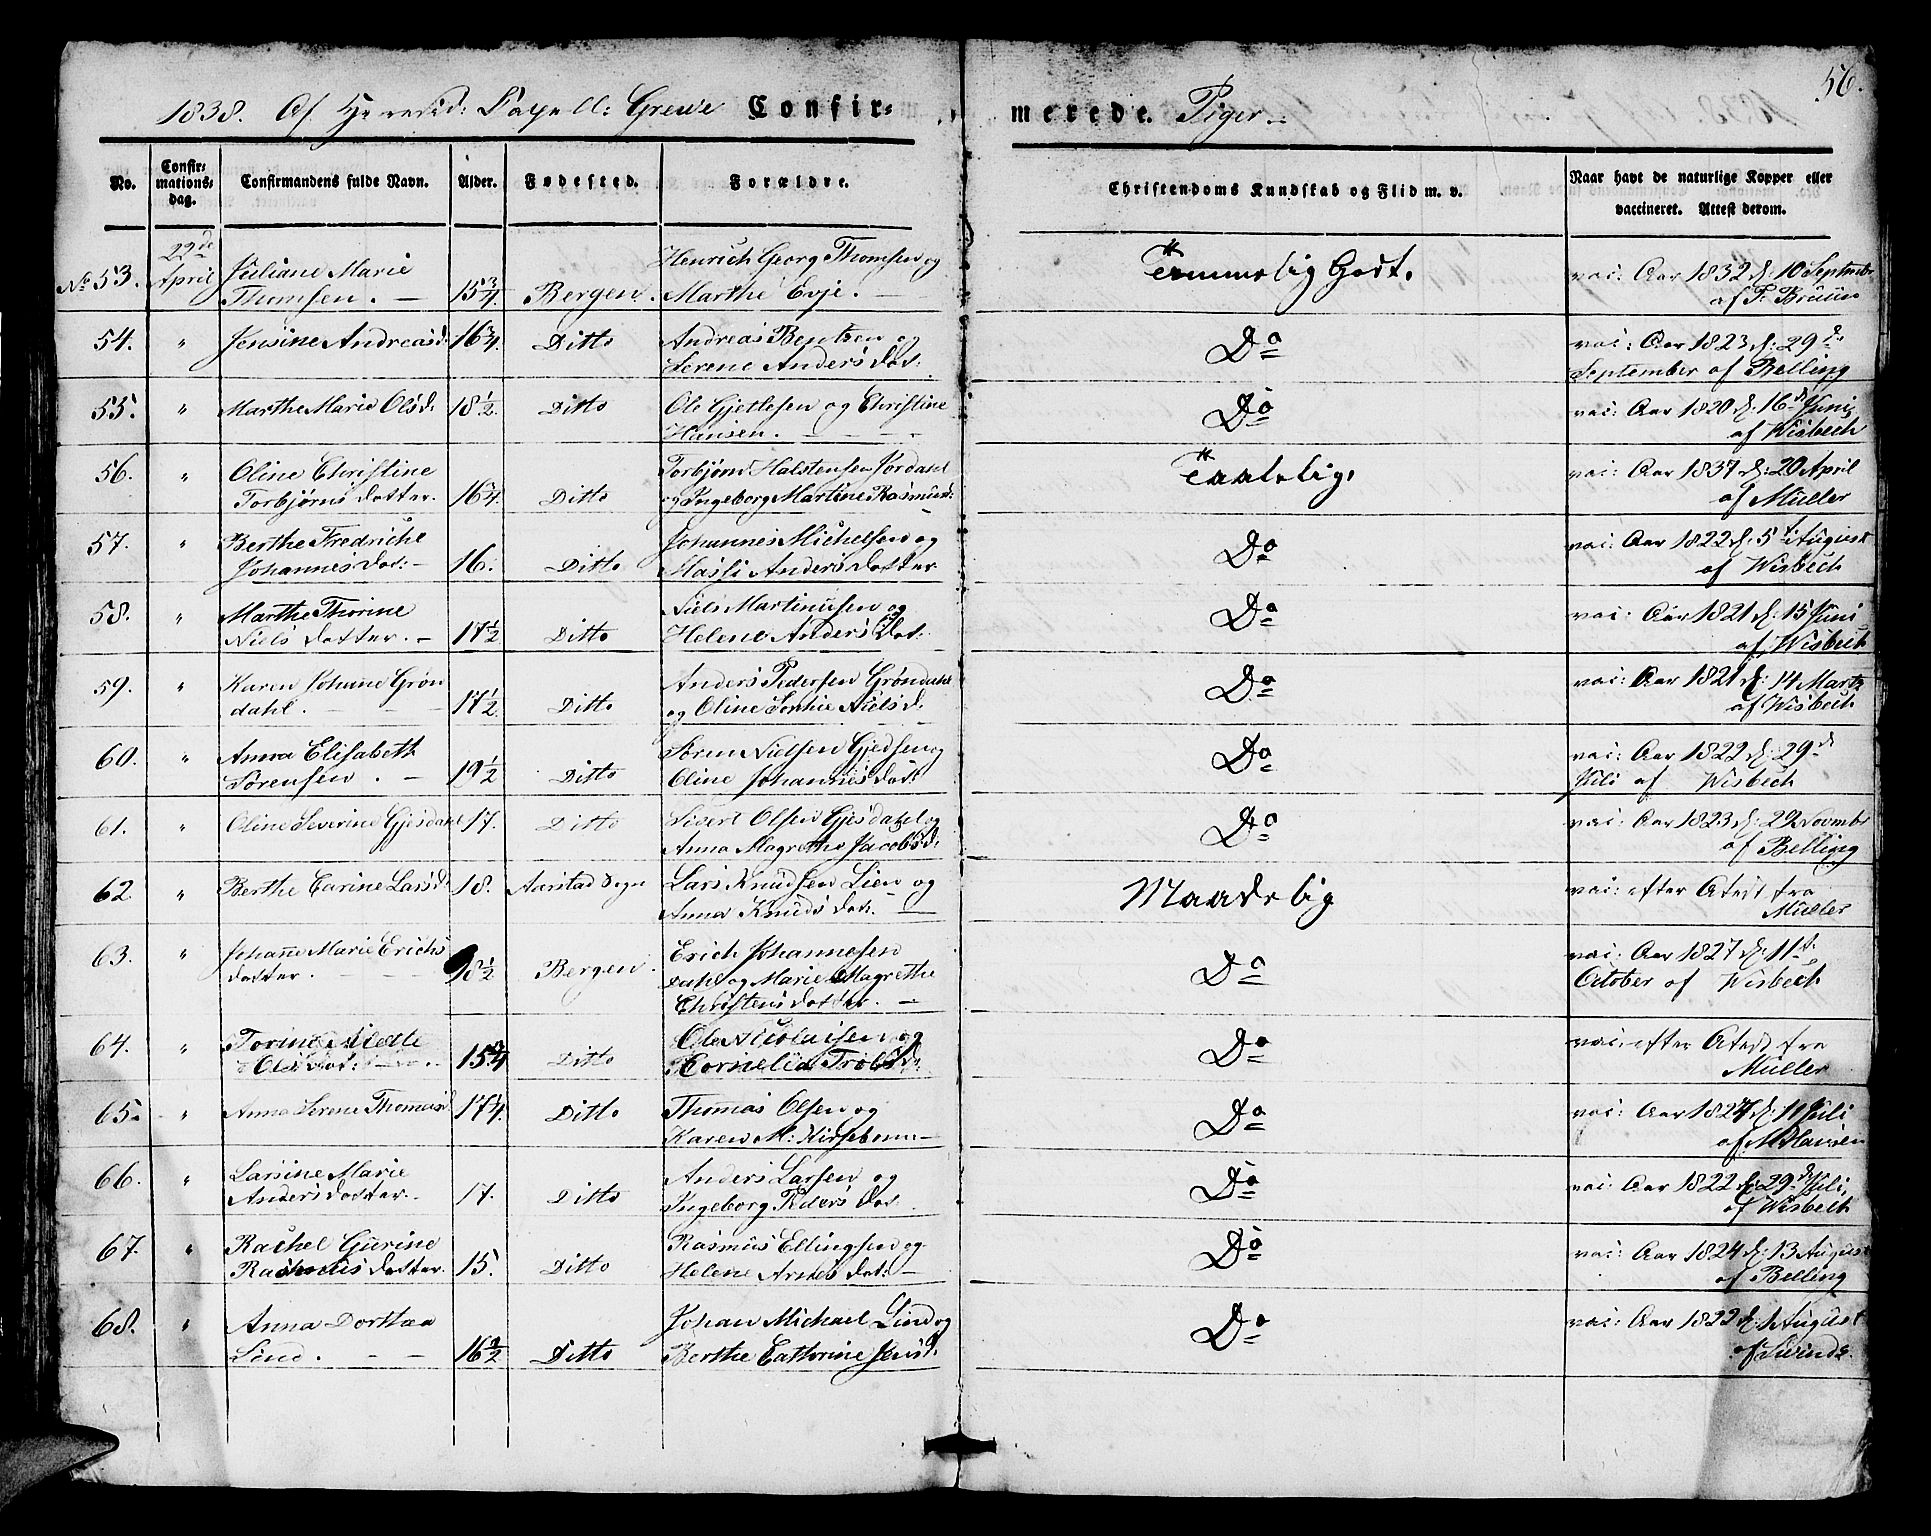 56.
1838. Af Hr resid: Capell: Greve Confir- merede Piger.
No. Confir- mations- dag. Confirmandens fulde Navn. Alder. Fødested. Forældre. Christendoms Kundskab og Flid m. v. Naar havt de naturlige Kopper eller vaccineret. Attest derom.
No 53. 22de April Juliane Marie Thomsen. 15 3/4 Bergen. Henrich Georg Thomsen og Marthe Evje. Temmelig Godt. vac: Aar 1832 d: 10 Septembr af P. Bruun
54. " Jensine Andreasd. 16 3/4. Ditto Andreas Bentsen og Serene Anders dot: Do vac: Aar 1823 d: 29de September af Belling
55. " Marthe Marie Olsd. 18 1/2. Ditto Ole Gjetlesen og Christine Hansen. Do vac: Aar 1820 d: 16d Juni af Wisbech
56. " Oline Christine Torbjørns dotter. 16 3/4. Ditto Torbjørn Halstensen Jordahl og Ingeborg Martine Rasmusd: Taalelig. vac: Aar 1837 d: 20 April af Müller
57. " Berthe Fredriche Johannes dot: 16. Ditto Johannes Michelsen og Massi Anders dotter Do vac: Aar 1822 d: 5t August af Wisbech
58. " Marthe Thorine Niels dotter. 17 1/2 Ditto Niels Martinusen og Helene Anders dot: Do vac: Aar 1821 d: 15 Juni af Wisbech
59. " Karen Johane Grøn dahl. 17 1/2. Ditto Anders Pedersen Grøndahl og Oline Sophie Niels d. Do vac: Aar 1821 d: 14 Marts af Wisbech
60. " Anna Elisabeth Sørensen. 19 1/2 Ditto Søren Nielsen Gjedsen og Oline Johannes dot: Do vac: Aar 1822 d: 29d Juli af Wisbech
61. " Oline Severine Gjesdahl 17. Ditto Sivert Olsen Gjesdahl og Anna Magrethe Jacobsd. Do vac: Aar 1823 d: 29 Novmbr af Belling
62 " Berthe Carine Larsd. 18. Aarstad Sogn Lars Knudsen Lien og Anna Knuds dot. Maadelig vac: efter Atest fra Müller
63. " Johane Marie Erichs dotter. 18 1/2 Bergen. Erich Johannesen Dahl og Marie Magrethe Christens dotter. Do vac: Aar 1827 d: 11t October af Wisbech
64. " Torine Ols dot: 15 3/4 Ditto Ole Nicolaisen og Cornelia Do vac: efter Atest fra Müller
65. " Anna Serene Thomasd. 17 1/4. Ditto Thomas Olsen og Karen M: Kirsebom Do vac: Aar 1824 d: 11 Juli af M Hansen
66. " Larsine Marie Anders dotter. 17. Ditto Anders Larsen og Ingeborg Peders dot. Do vac: Aar 1822 d: 29d Juli, af Wisbech
67. " Rachel Gurine Rasmus dotter. 15. Ditto Rasmus Ellingsen og Helene Arnes dot: Do vac: Aar 1824 d: 13 August af Belling
68. " Anna Dorthea Lind. 16 3/2 Ditto Johan Michael Lind og Berthe Cathrine Jensd. Do vac: Aar 1822 d: 1 August af